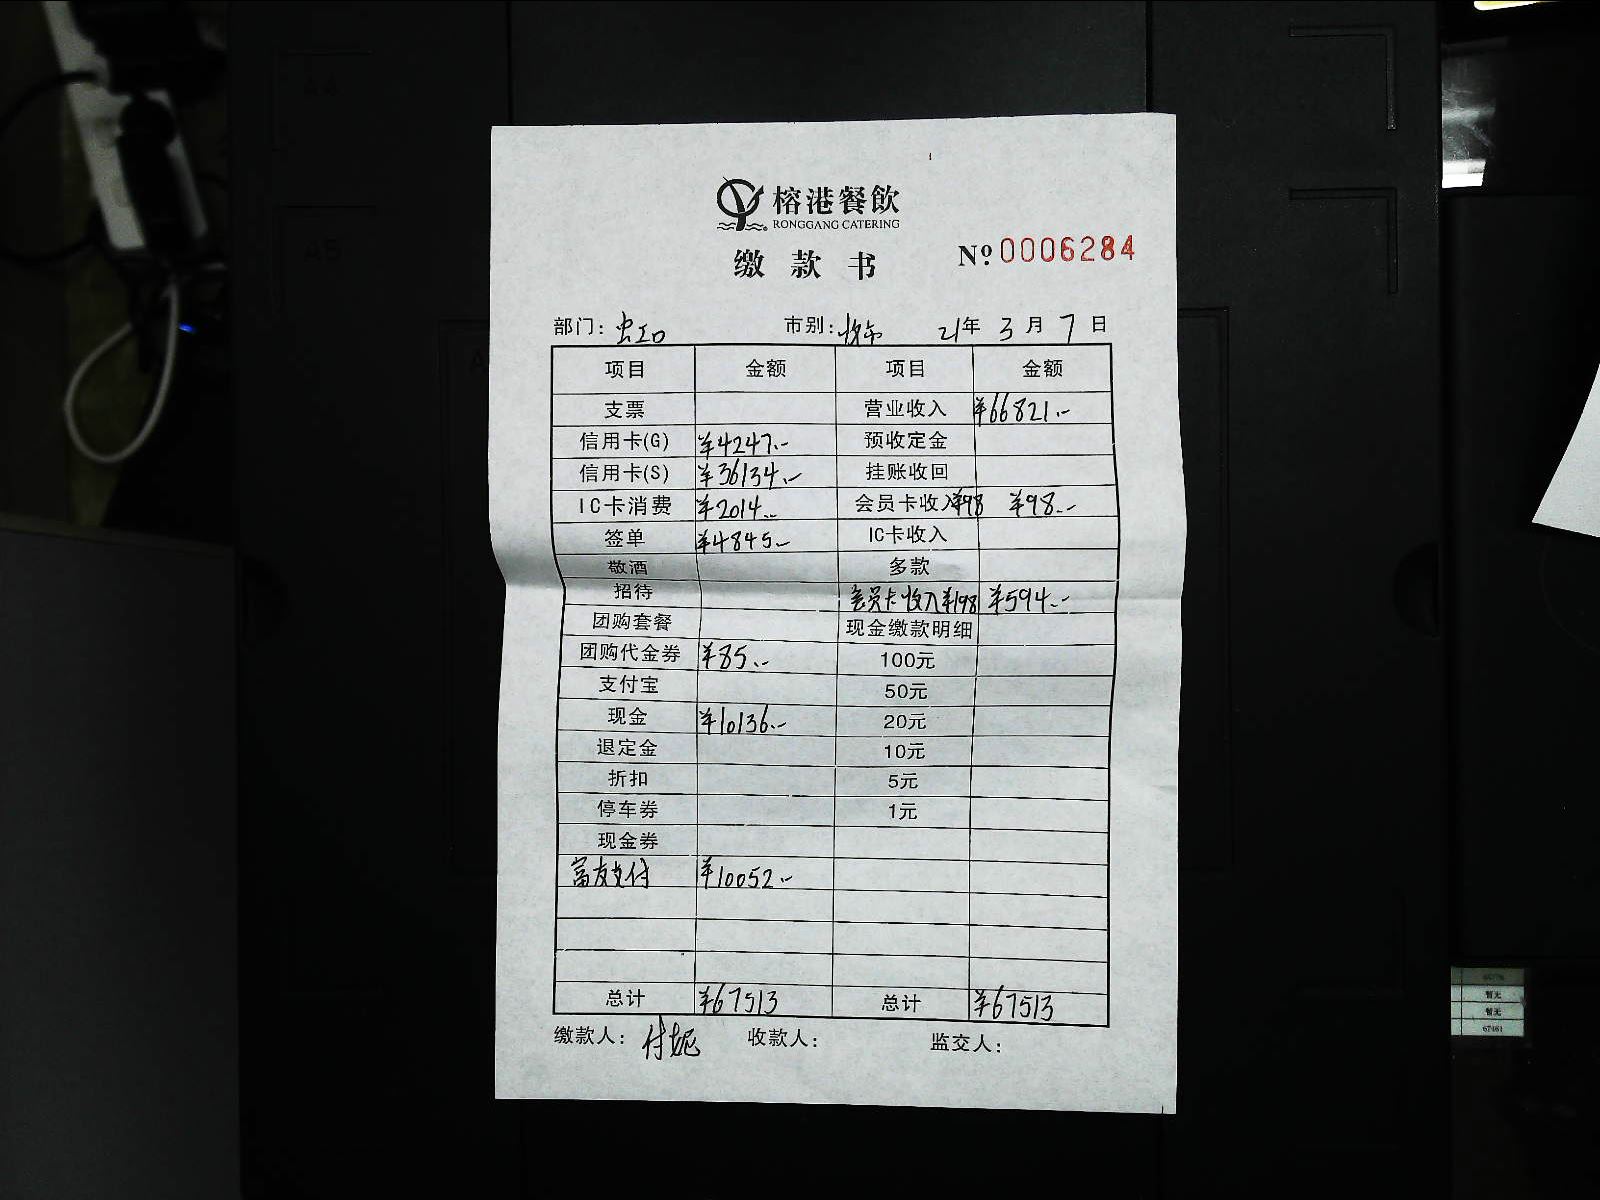 榕港餐飲
RONGGANG CATERING
缴款书
Nº 0006284
部门: 虹口 市别: 21年 3月 7日
项目 金额 项目 金额
支票 营业收入 ¥66821.-
信用卡(G) ¥4247.- 预收定金
信用卡(S) ¥36134.- 挂账收回
IC卡消费 ¥2014.- 会员卡收入¥98 ¥98.-
签单 ¥4845.- IC卡收入
敬酒 多款
招待 会员卡收入¥198 ¥594.-
团购套餐 现金缴款明细
团购代金券 ¥85.- 100元
支付宝 50元
现金 ¥10136.- 20元
退定金 10元
折扣 5元
停车券 1元
现金券
富友支付 ¥10052.-
总计 ¥67513 总计 ¥67513
缴款人: 付妮 收款人: 监交人:
A4
A5
暂无
暂无